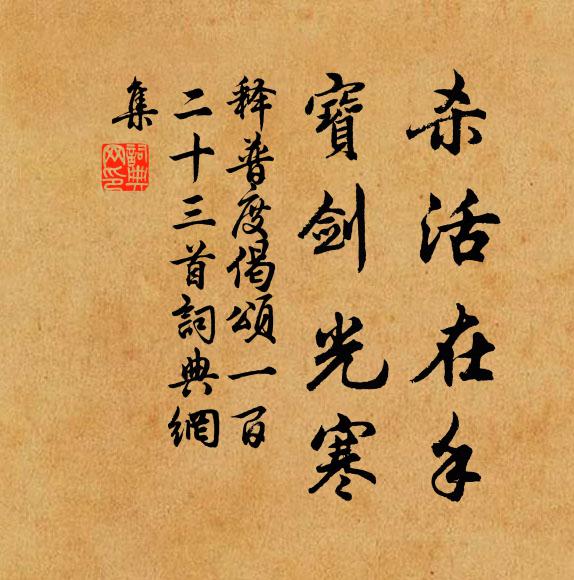 杀活在手
寶劍光寒
释普度偈頌一百
二十三首詞典網
集
詞典網印